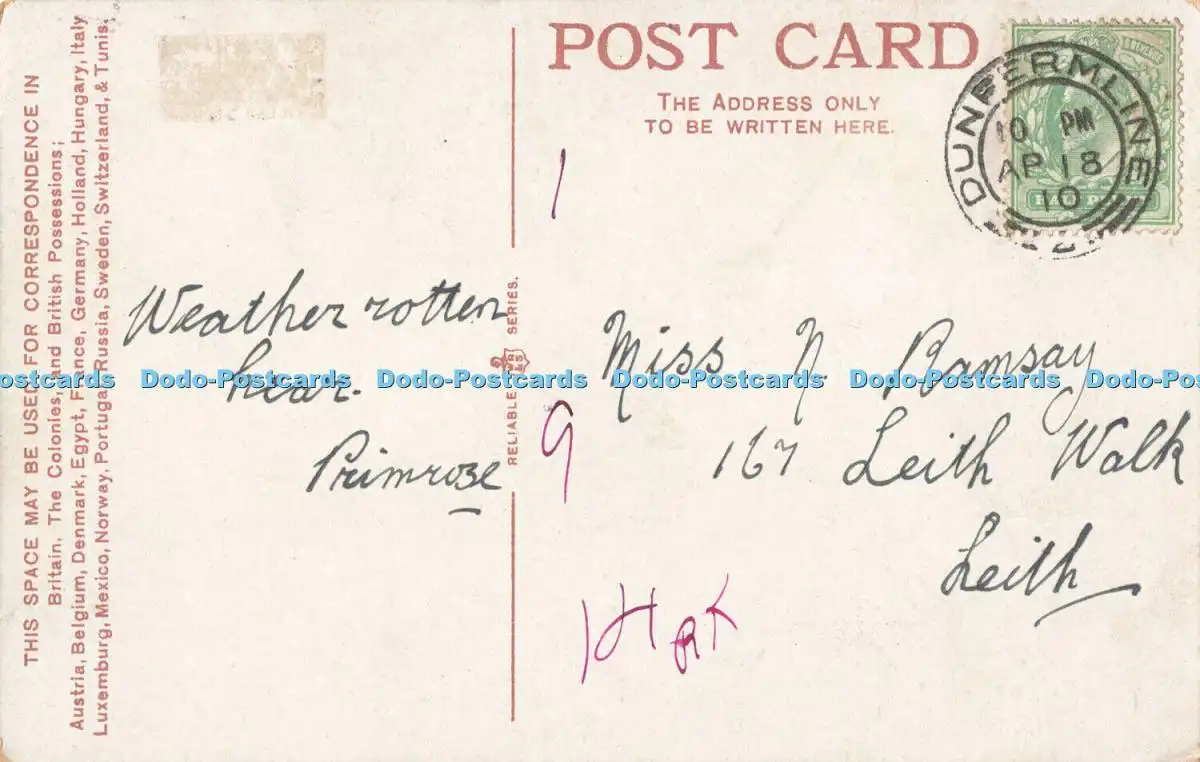 THIS SPACE MAY BE USED FOR CORRESPONDENCE IN
Britain, The Colonies, and British Possessions;
Austria, Belgium, Denmark, Egypt, France, Germany, Holland, Hungary, Italy
Luxemburg, Mexico, Norway, Portugal, Russia, Sweden, Switzerland, & Tunis.
Weather rotten
hear.
Primrose
RELIABLE SERIES.
POST CARD
THE ADDRESS ONLY
TO BE WRITTEN HERE.
DUNFERMLINE
10 PM
AP 18
10
1
Miss N Ramsay
167 Leith Walk
Leith
9
Dodo-Postcards Dodo-Postcards Dodo-Postcards Dodo-Postcards Dodo-Postcards Dodo-Postcards